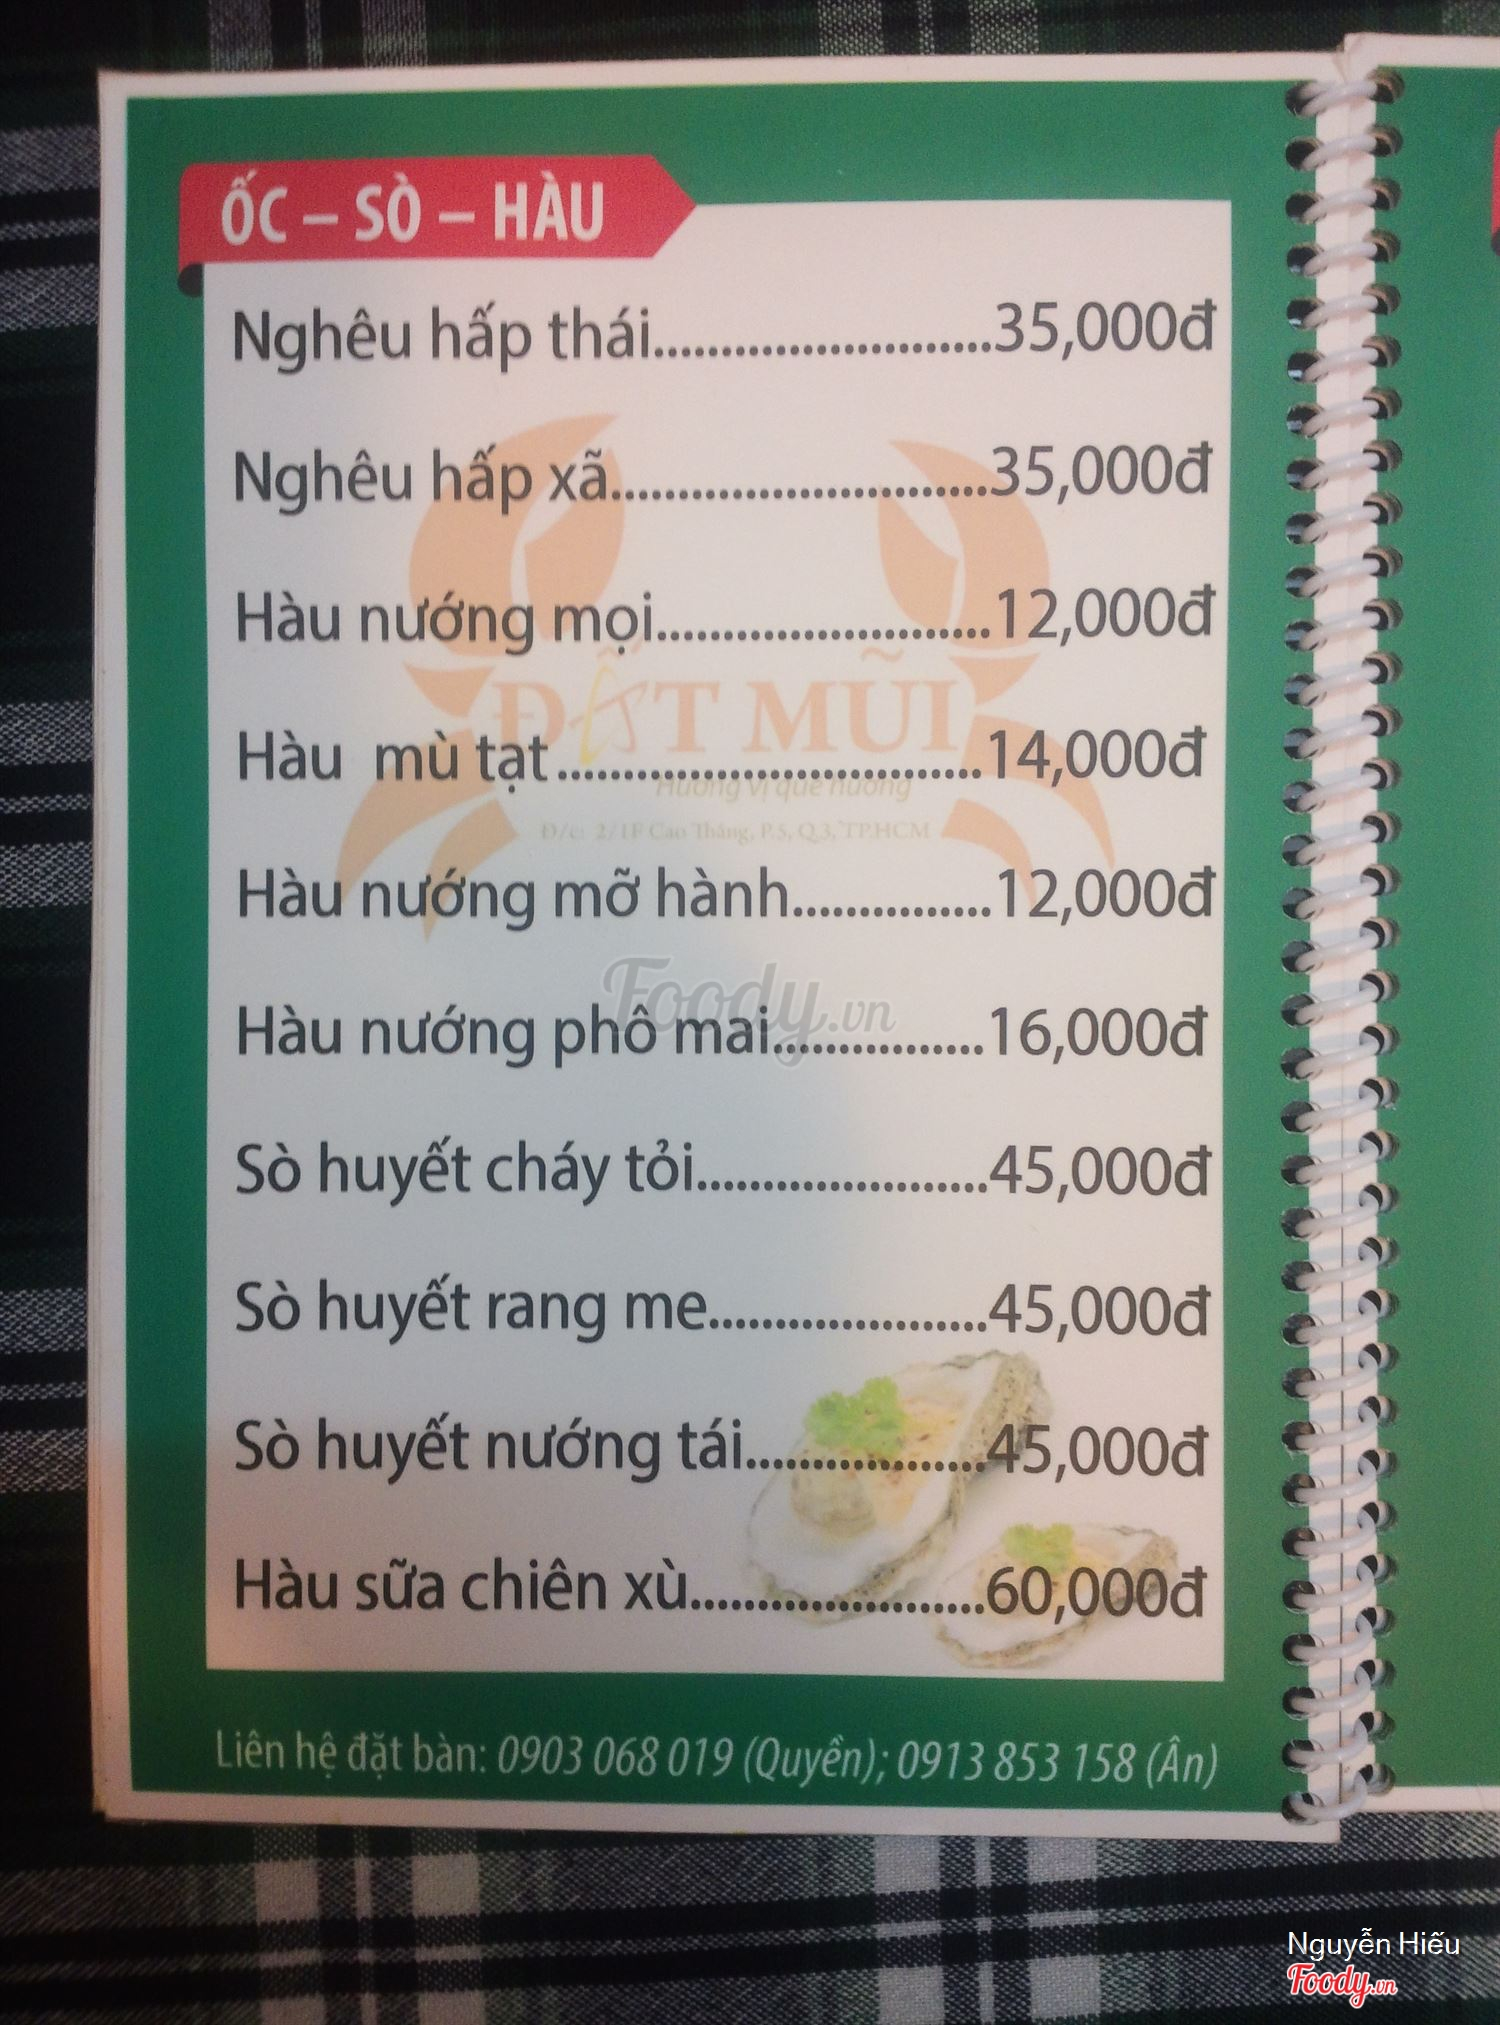 ỐC – SÒ – HÀU
Nghêu hấp thái.........................35,000đ
Nghêu hấp xã............................35,000đ
Hàu nướng mọi.........................12,000đ
Hàu  mù tạt................................14,000đ
Hàu nướng mỡ hành...............12,000đ
Hàu nướng phô mai................16,000đ
Sò huyết cháy tỏi......................45,000đ
Sò huyết rang me.....................45,000đ
Sò huyết nướng tái..................45,000đ
Hàu sữa chiên xù......................60,000đ
ĐẤT MŨI
Hương vị quê hương
Đ/c: 2/1F Cao Thắng, P.5, Q.3, TP.HCM
Foody.vn
Liên hệ đặt bàn: 0903 068 019 (Quyền); 0913 853 158 (Ân)
Nguyễn Hiếu
Foody.vn